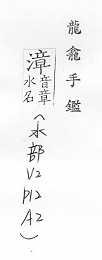 龍龕手鑑
漳音章水名(水部V2P12A2)